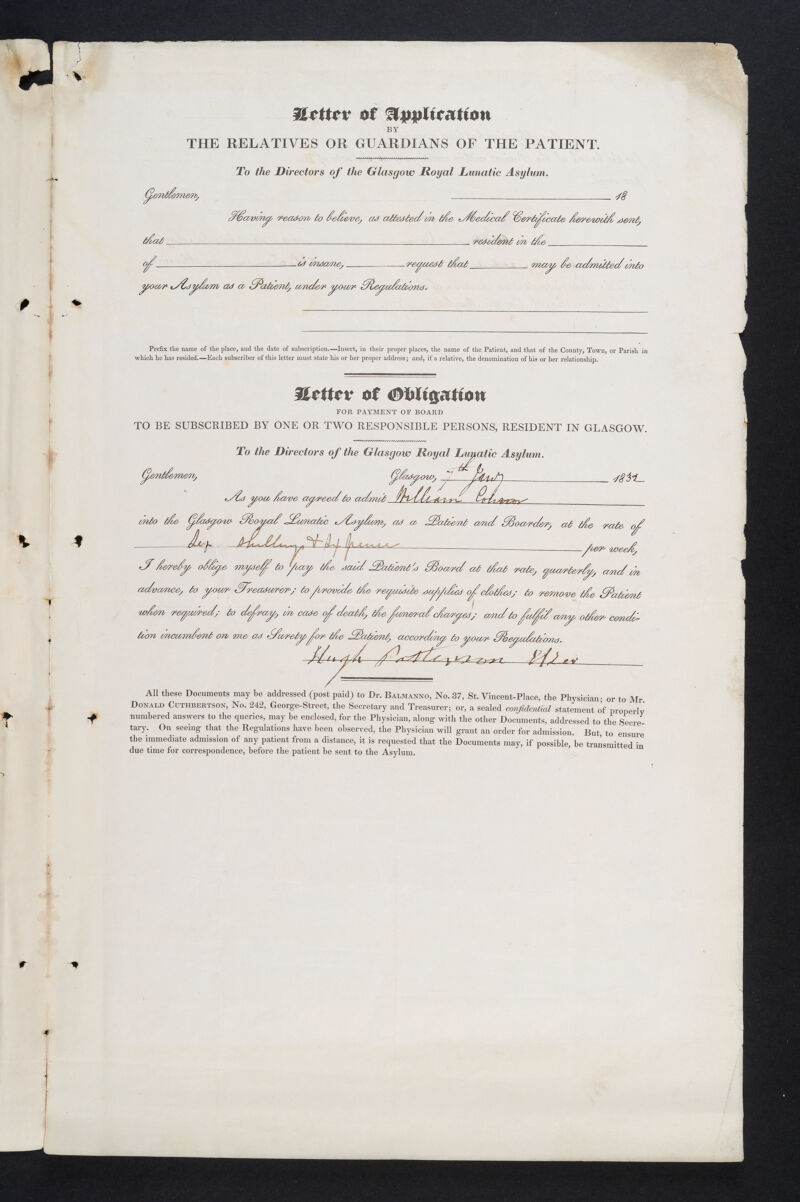 Letter of Application
BY
THE RELATIVES OR GUARDIANS OF THE PATIENT.
To the Directors of the Glasgow Royal Lunatic Asylum.
Gentlemen, 18
Having reason to believe, as attested in the Medical Certificate herewith sent,
that resident in the
of is insane, request that may be admitted into
your Asylum as a Patient, under your Regulations.
Prefix the name of the place, and the date of subscription.—Insert, in their proper places, the name of the Patient, and that of the County, Town, or Parish in
which he has resided.—Each subscriber of this letter must state his or her proper address; and, if a relative, the denomination of his or her relationship.
Letter of Obligation
FOR PAYMENT OF BOARD
TO BE SUBSCRIBED BY ONE OR TWO RESPONSIBLE PERSONS, RESIDENT IN GLASGOW.
To the Directors of the Glasgow Royal Lunatic Asylum.
Gentlemen, Glasgow, 7th Jany 183
As you have agreed to admit William
into the Glasgow Royal Lunatic Asylum, as a Patient and Boarder, at the rate of
Six shillings & Sixpence per week,
I hereby oblige myself to pay the said Patient's Board at that rate, quarterly, and in
advance, to your Treasurer; to provide the requisite supplies of clothes; to remove the Patient
when required; to defray, in case of death, the funeral charges; and to fulfil any other condi-
tion incumbent on me as Surety for the Patient, according to your Regulations.
Hugh Patterson
All these Documents may be addressed (post paid) to Dr. BALMANNO, No. 37, St. Vincent-Place, the Physician; or to Mr.
DONALD CUTHBERTSON, No. 242, George-Street, the Secretary and Treasurer; or, a sealed confidential statement of properly
numbered answers to the queries, may be enclosed, for the Physician, along with the other Documents, addressed to the Secre-
tary. On seeing that the Regulations have been observed, the Physician will grant an order for admission. But, to ensure
the immediate admission of any patient from a distance, it is requested that the Documents may, if possible, be transmitted in
due time for correspondence, before the patient be sent to the Asylum.